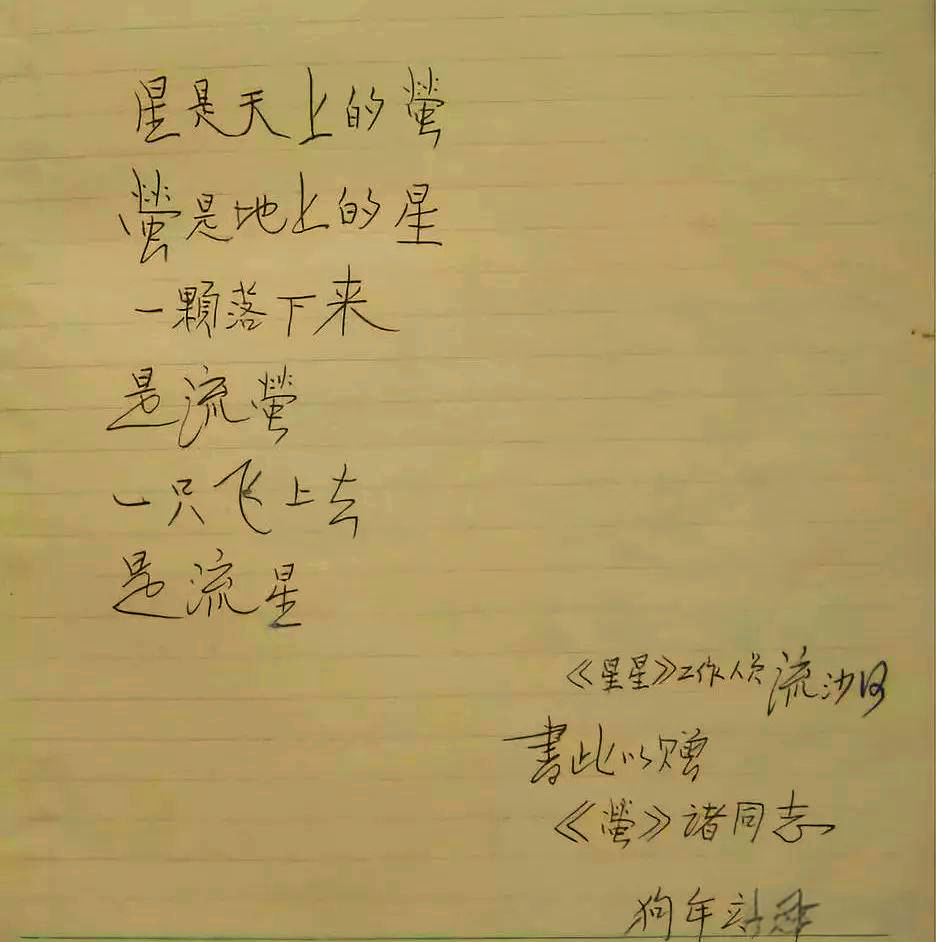 星是天上的螢
螢是地上的星
一顆落下来
是流螢
一只飞上去
是流星
《星星》工作人员流沙河
書此以赠
《螢》诸同志
狗年